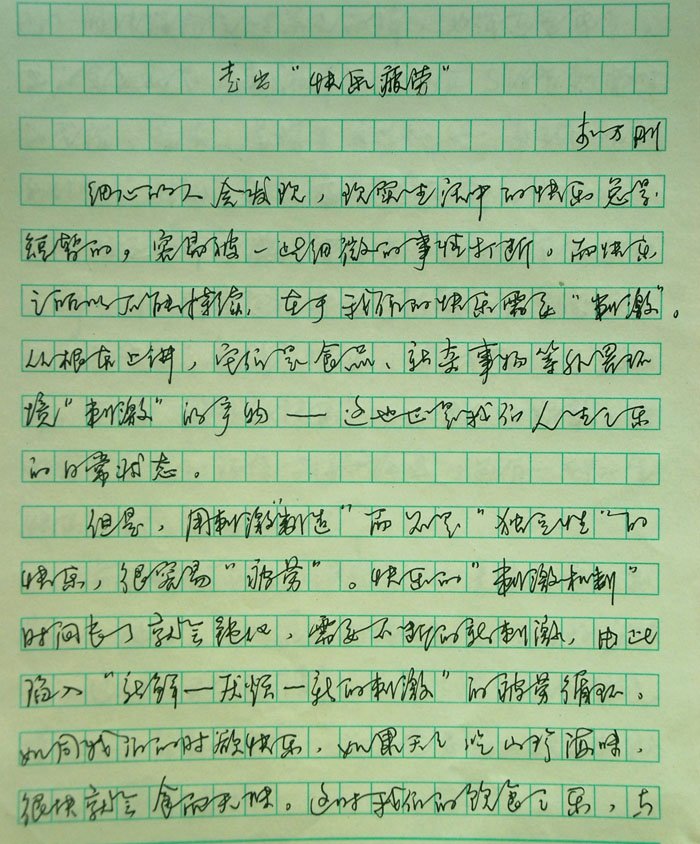 走出“快乐疲劳”
李万刚
细心的人会发现，现实生活中的快乐总是
短暂的，容易被一些细微的事情打断。而快乐
之所以不能持续，在于我们的快乐需要“刺激”。
从根本上讲，它们是食品、新奇事物等外界环
境“刺激”的产物——这也正是我们人生之乐
的日常状态。
但是，用刺激“制造”而不是“独立性”的
快乐，很容易“疲劳”。快乐的“刺激机制”
时间长了就会钝化，需要不断的新刺激，由此
陷入“新鲜—厌烦—新的刺激”的疲劳循环。
如同我们的时欲快乐，如果天天吃山珍海味，
很快就会食而无味。这时我们的饮食之乐，与